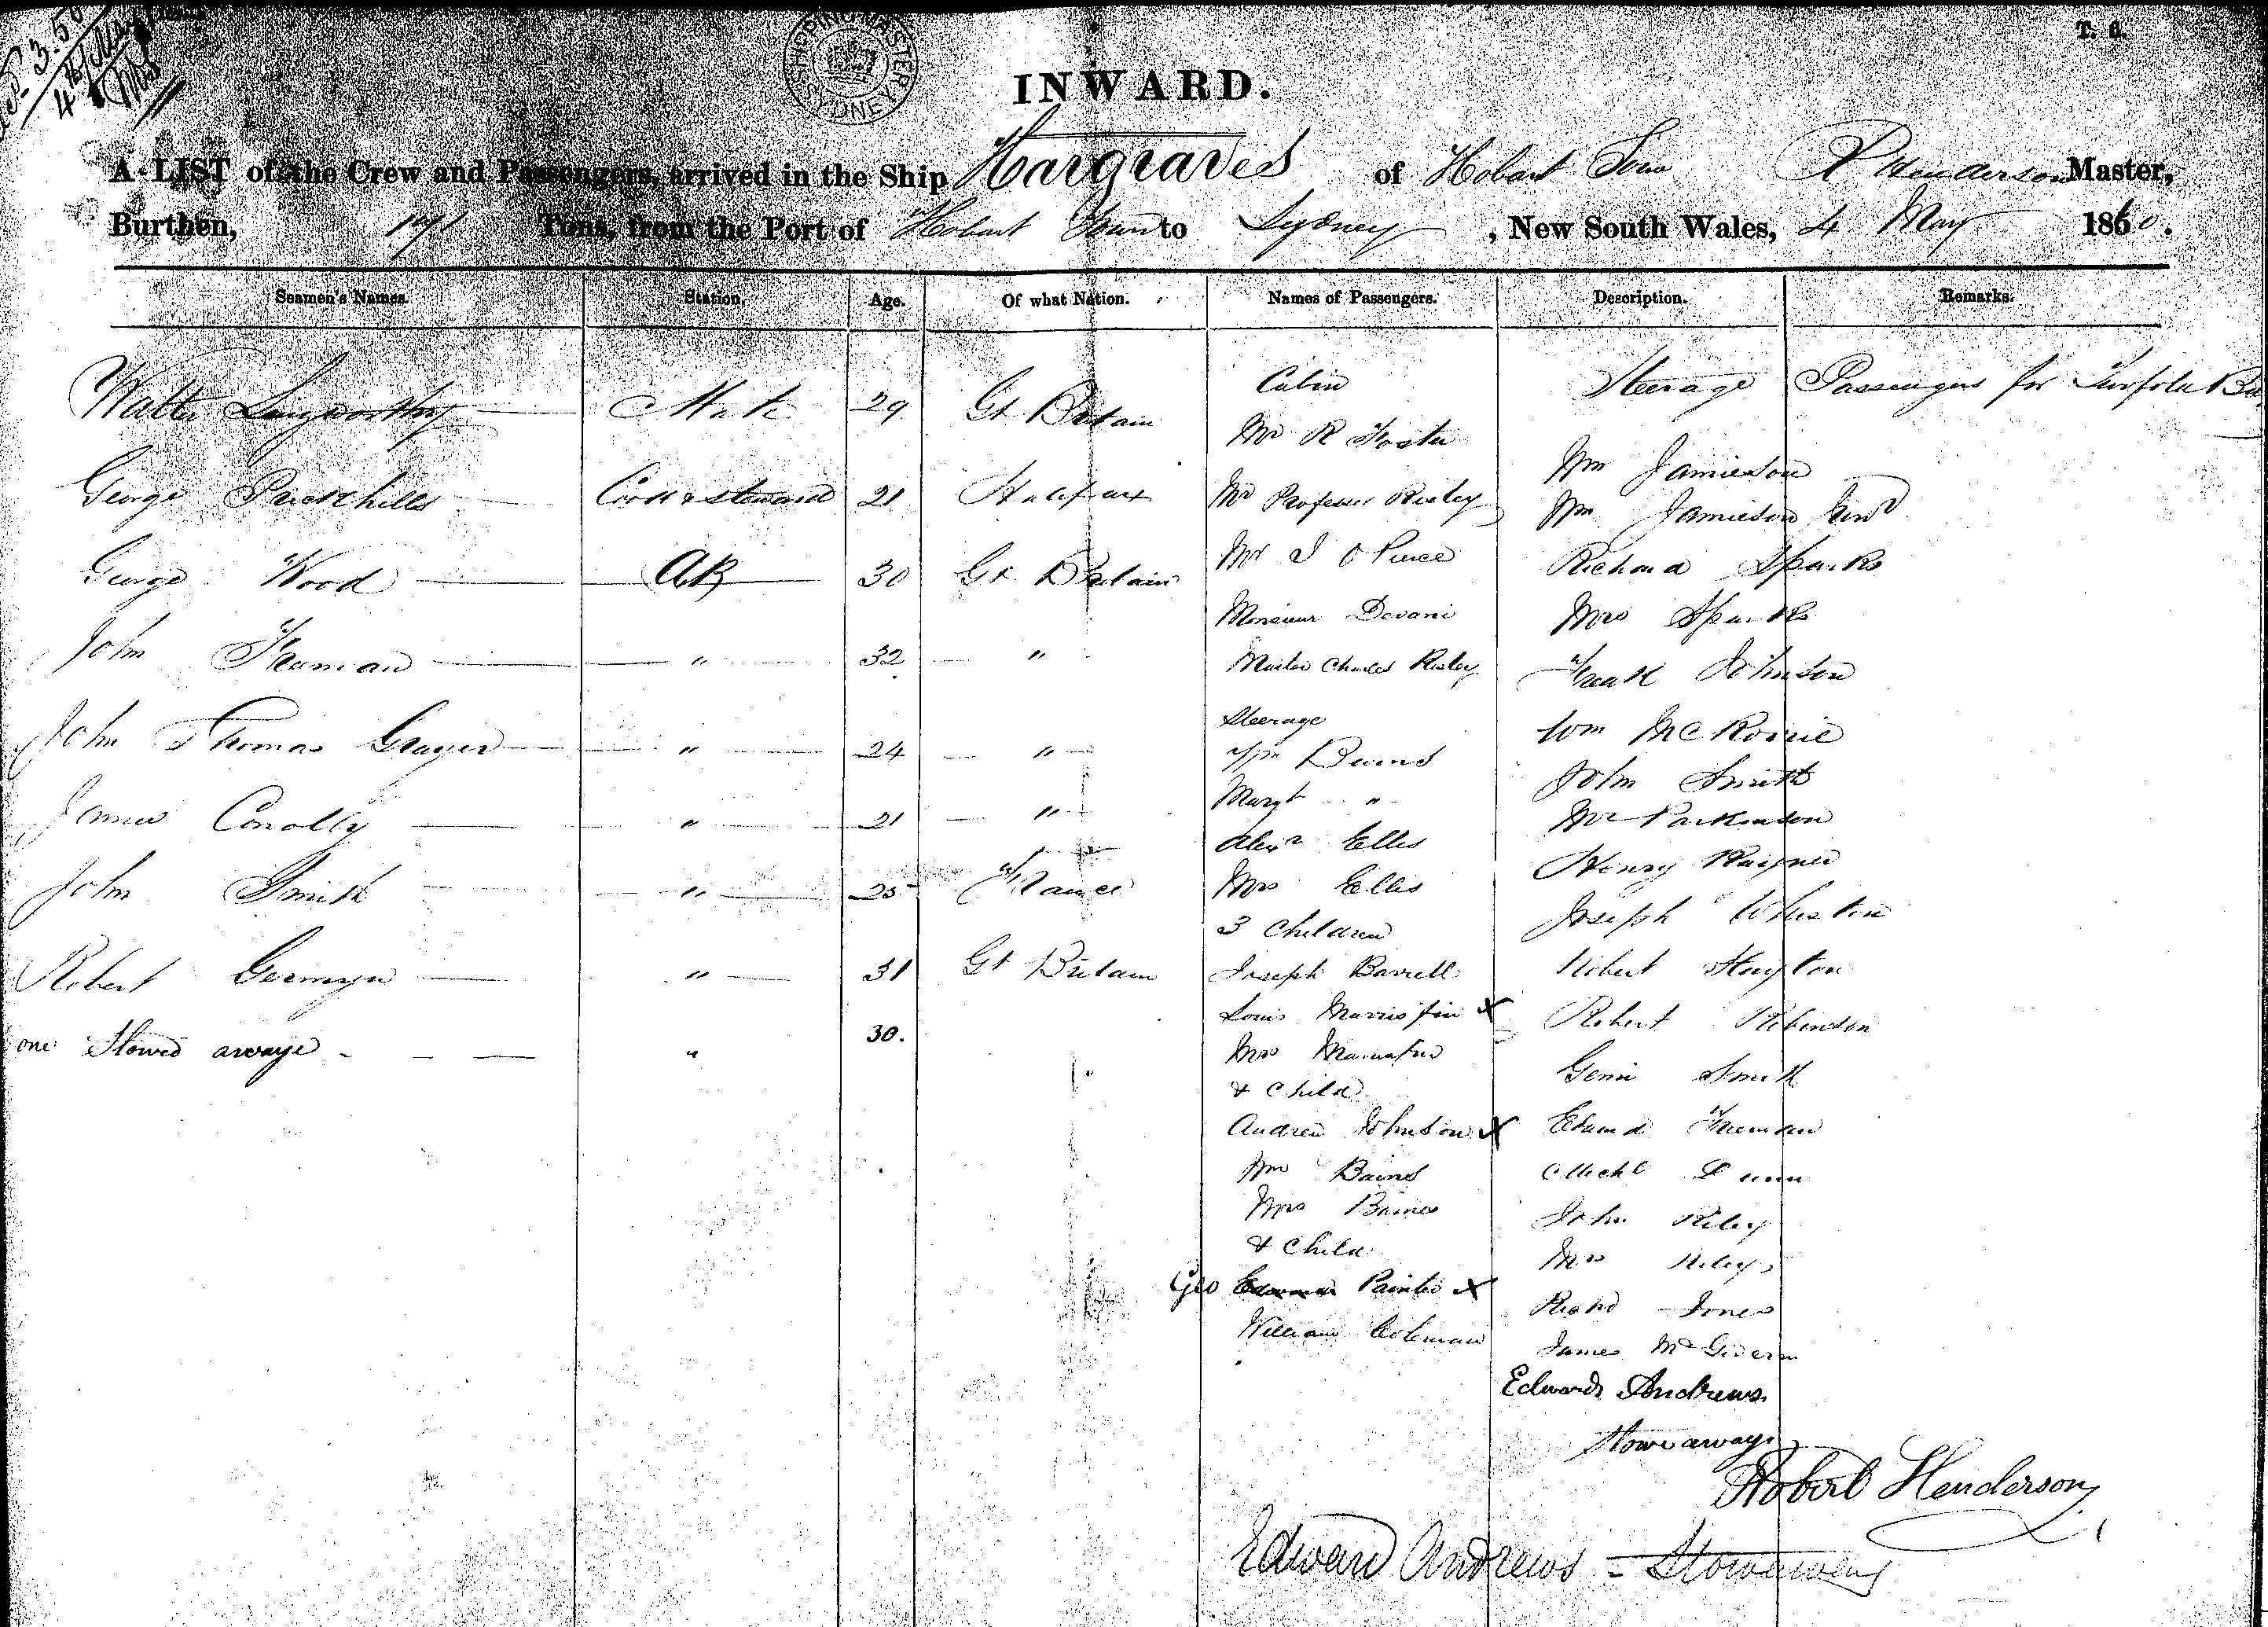 T. 6.
SHIPPING MASTER SYDNEY
INWARD.
A LIST of the Crew and Passengers, arrived in the Ship Hargraves of Hobart Town R Henderson Master,
Burthen, 171 Tons, from the Port of Hobart Town to Sydney, New South Wales, 4 May 1860.
Seamen's Names. Station. Age. Of what Nation. Names of Passengers. Description. Remarks.
Walter Langworthy Mate 29 Gt Britain
George Cook & Steward 21 Halifax
George Wood AB 30 Gt Britain
John Truman " 32 "
John Thomas " 24 "
James Conolly " 21 "
John Smith " 25 France
Robert Germyn " 31 Gt Britain
one Stowed awaye " 30.
Cabin
Mr R Foster
Mr Professor Risley
Mr J O Pierce
Monsieur Devani
Master Charles Risley
Steerage
Wm
Margt "
Alexr Ellis
Mrs Ellis
3 Children
Joseph Barrell
Louis X
Mrs
& Child
Andrew Johnson X
Wm Bains
Mrs Baines
& Child
Geo Painter X
William Coleman
Steerage Passengers for
Wm Jamieson
Wm Jamieson Junr
Richard Sparks
Mrs Sparks
Johnson
Wm
John Smith
Mr Parkinson
Henry
Joseph
Robert
Robert Robinson
Smith
Edward Freeman
Michl Dunn
John Riley
Mrs Riley
Richd Jones
James McGivern
Edward Andrews
Stowaway
Robert Henderson
Edward Andrews = Stowaway